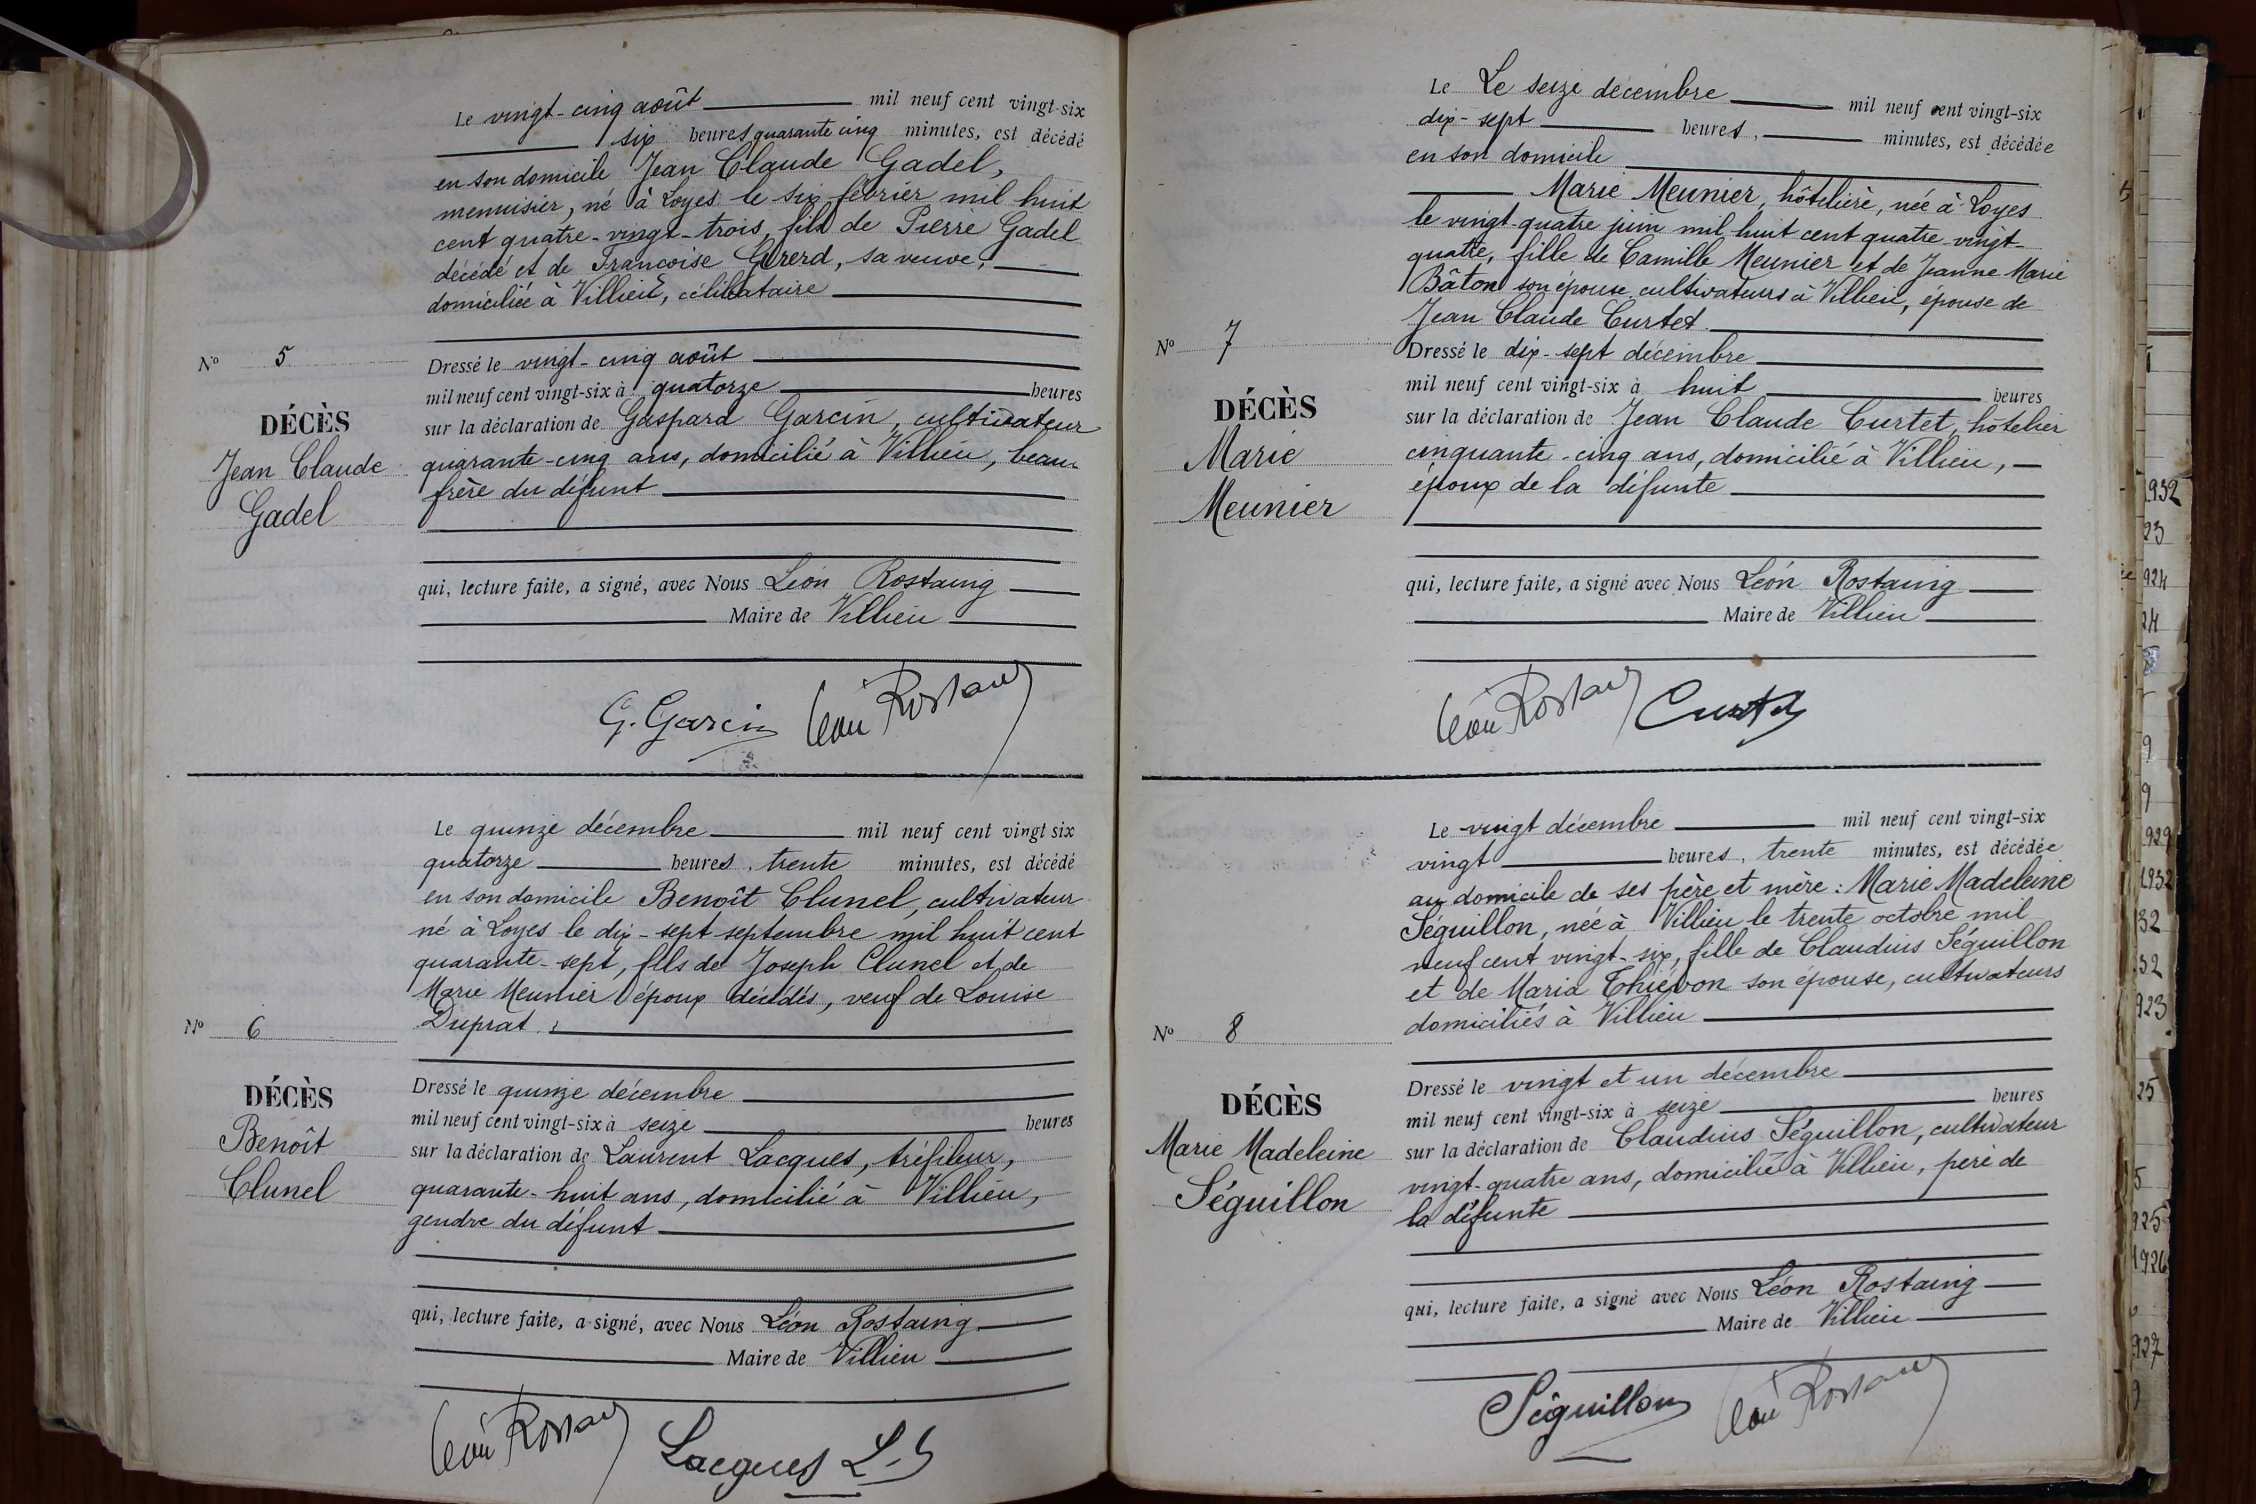 Le vingt-cinq août mil neuf cent vingt-six
six heures quarante cinq minutes, est décédé
en son domicile Jean Claude Gadel,
menuisier, né à Loyes le six février mil huit
cent quatre-vingt-trois, fils de Pierre Gadel
décédé et de Françoise Girerd, sa veuve,
domiciliée à Villieu, célibataire
Nº 5
DÉCÈS
Jean Claude
Gadel
Dressé le vingt-cinq août
mil neuf cent vingt-six à quatorze heures
sur la déclaration de Gaspard Garcin, cultivateur
quarante-cinq ans, domicilié à Villieu, beau-
frère du défunt
qui, lecture faite, a signé, avec Nous Léon Rostaing
Maire de Villieu
G. Garcin Léon Rostaing
Le quinze décembre mil neuf cent vingt six
quatorze heures trente minutes, est décédé
en son domicile Benoît Clunel, cultivateur
né à Loyes le dix-sept septembre mil huit cent
quarante-sept, fils de Joseph Clunel et de
Marie Meunier époux décédés, veuf de Louise
Duprat.
Nº 6
DÉCÈS
Benoît
Clunel
Dressé le quinze décembre
mil neuf cent vingt-six à seize heures
sur la déclaration de Laurent Lacques, tréfileur,
quarante-huit ans, domicilié à Villieu,
gendre du défunt
qui, lecture faite, a signé, avec Nous Léon Rostaing
Maire de Villieu
Léon Rostaing Lacques L.
Le Le seize décembre mil neuf cent vingt-six
dix-sept heures, minutes, est décédée
en son domicile
Marie Meunier, hôtelière, née à Loyes
le vingt-quatre juin mil huit cent quatre-vingt-
quatre, fille de Camille Meunier et de Jeanne Marie
Bâton son épouse cultivateurs à Villieu, épouse de
Jean Claude Curtet.
Nº 7
DÉCÈS
Marie
Meunier
Dressé le dix-sept décembre
mil neuf cent vingt-six à huit heures
sur la déclaration de Jean Claude Curtet, hôtelier
cinquante-cinq ans, domicilié à Villieu,
époux de la défunte
qui, lecture faite, a signé avec Nous Léon Rostaing
Maire de Villieu
Léon Rostaing Curtet
Le vingt décembre mil neuf cent vingt-six
vingt heures, trente minutes, est décédée
au domicile de ses père et mère : Marie Madeleine
Séguillon, née à Villieu le trente octobre mil
neuf cent vingt-six, fille de Claudius Séguillon
et de Maria Thiévon son épouse, cultivateurs
domiciliés à Villieu
Nº 8
DÉCÈS
Marie Madeleine
Séguillon
Dressé le vingt et un décembre
mil neuf cent vingt-six à seize heures
sur la déclaration de Claudius Séguillon, cultivateur
vingt-quatre ans, domicilié à Villieu, père de
la défunte
qui, lecture faite, a signé avec Nous Léon Rostaing
Maire de Villieu
Séguillon Léon Rostaing
1932
23
924
24
9
9
929
1932
32
32
923
25
5
925
1926
927